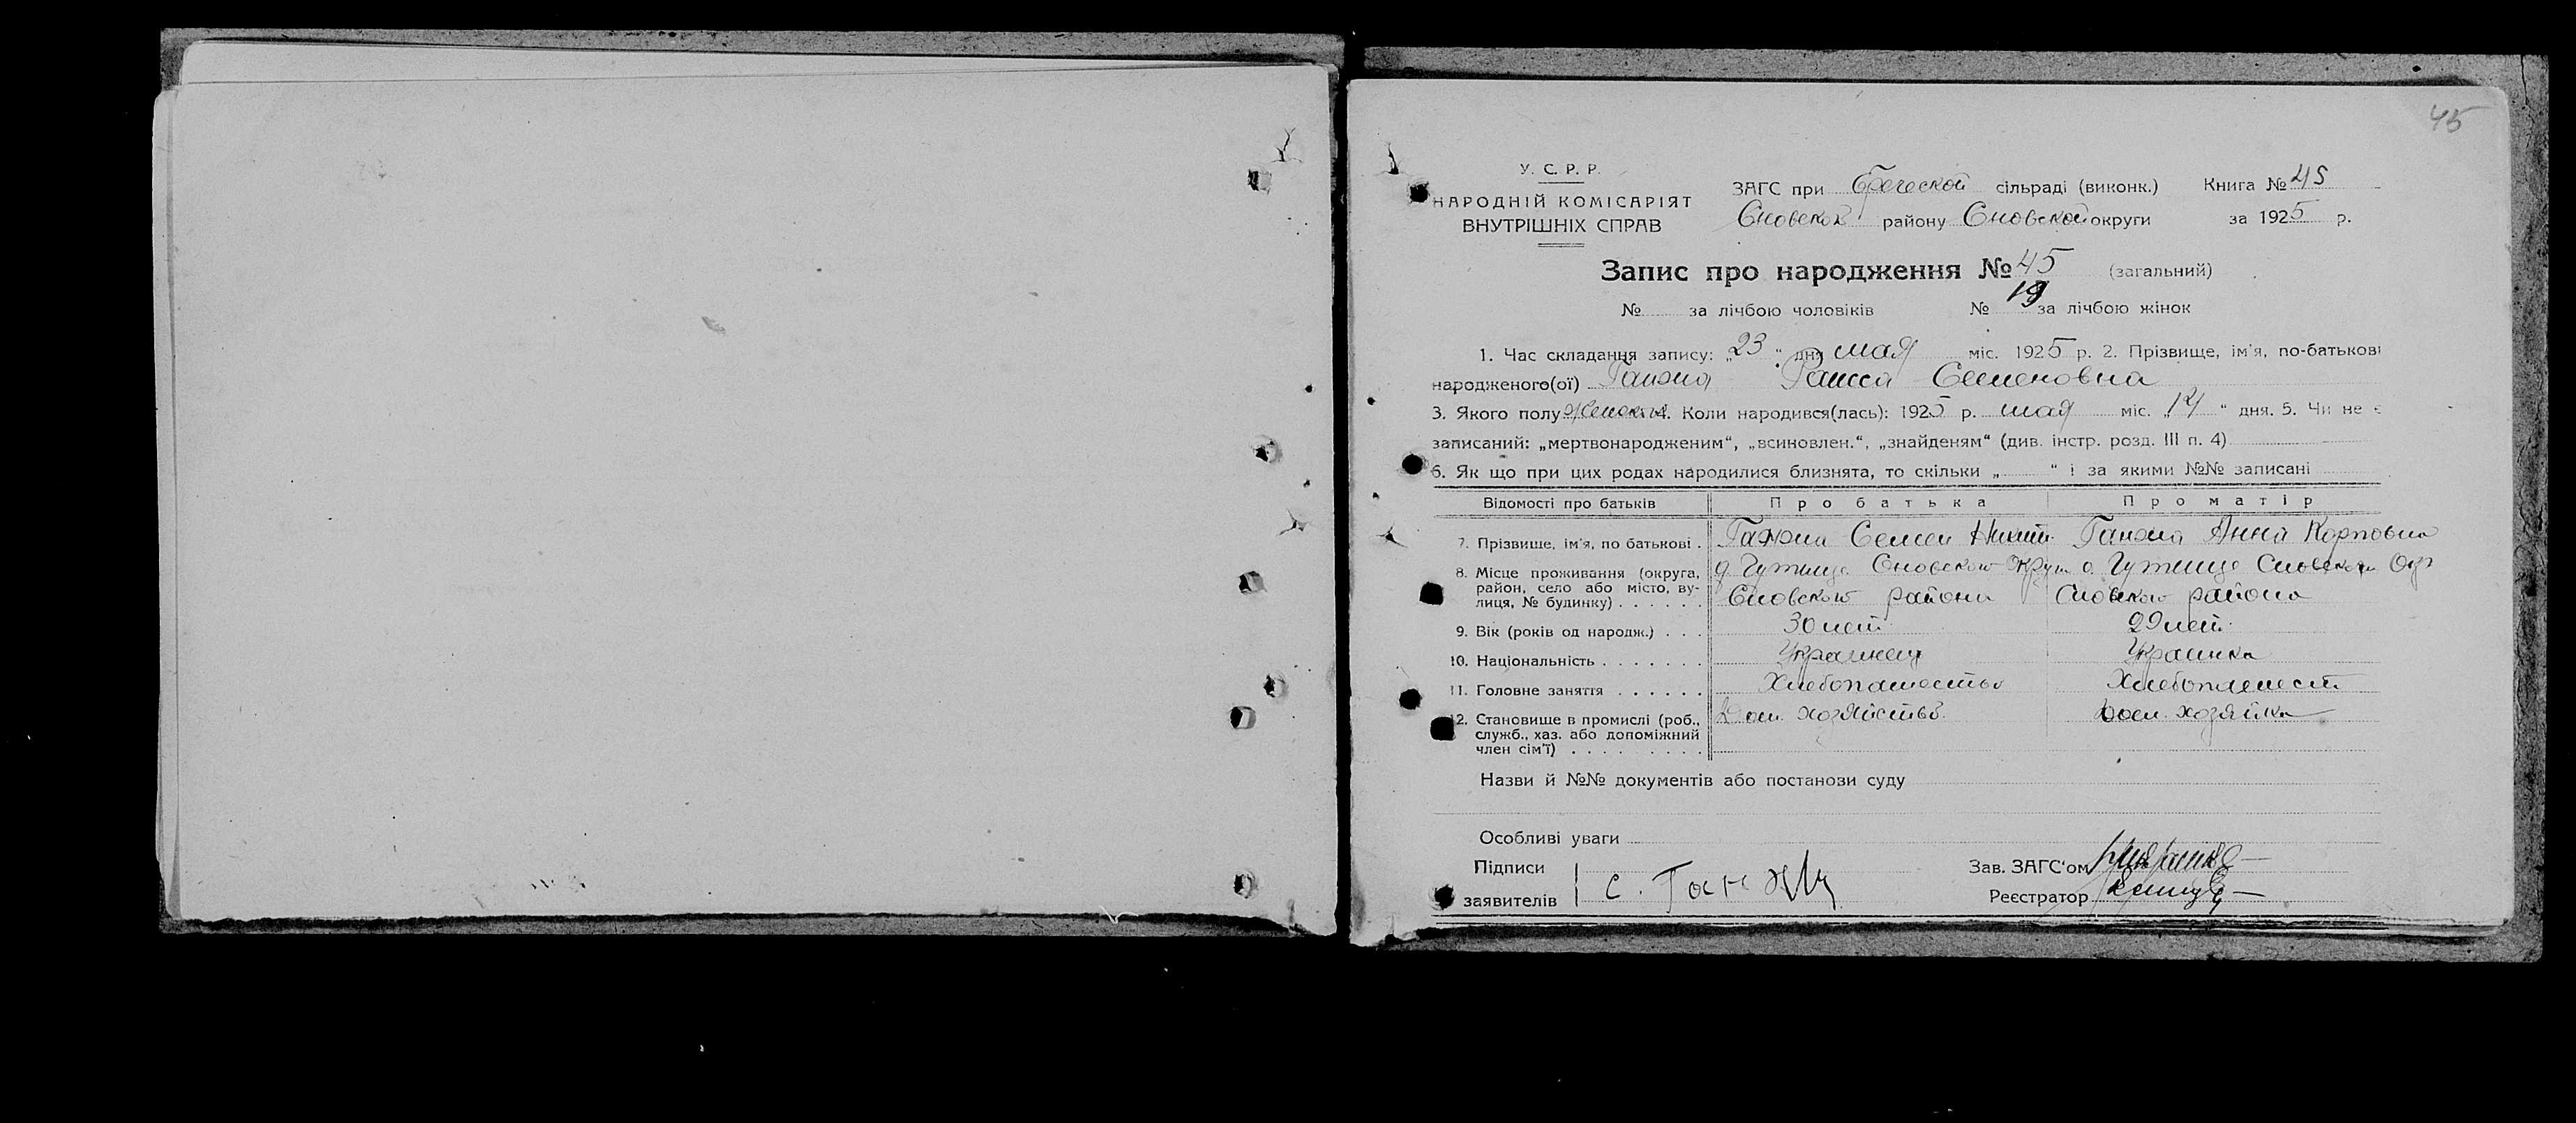 45
У. С. Р. Р.
НАРОДНІЙ КОМІСАРІЯТ
ВНУТРІШНІХ СПРАВ
ЗАГС при сільраді (виконк.) Книга № 45
Сновского району Сновской округи за 1925 р.
Запис про народження № 45 (загальний)
№ за лічбою чоловіків № 19 за лічбою жінок
1. Час складання запису: „23“ дня мая міс. 1925 р. 2. Прізвище, ім'я, по-батькові
народженого(ої) Ганжа Раисса Семеновна
3. Якого полу женского 4. Коли народився(лась): 1925 р. мая міс. „14“ дня. 5. Чи не є
записаний: „мертвонародженим“, „всиновлен.“, „знайденям“ (див. інстр. розд. III п. 4)
6. Як що при цих родах народилися близнята, то скільки „ “ і за якими №№ записані
Відомості про батьків Про батька Про матір
7. Прізвище, ім'я, по батькові . Ганжа Семен Никит. Ганжа Анна Карповна
8. Місце проживання (округа, район, село або місто, вулиця, № будинку) . . . . . . д. Гутище Сновского Округа д. Гутище Сновского Окр
Сновского района Сновского района
9. Вік (років од народж.) . . . 30 лет 29 лет
10. Національність . . . . . . . Украинец Украинка
11. Головне заняття . . . . . . Хлебопашество Хлебопашест
12. Становище в промислі (роб., служб., хаз. або допоміжний член сім'ї) . . . . . . . . . Дом. хозяйство Дом. хозяйка
Назви й №№ документів або постанови суду
Особливі уваги
Підписи
заявителів С. Ганжа
Зав. ЗАГС'ом
Реєстратор